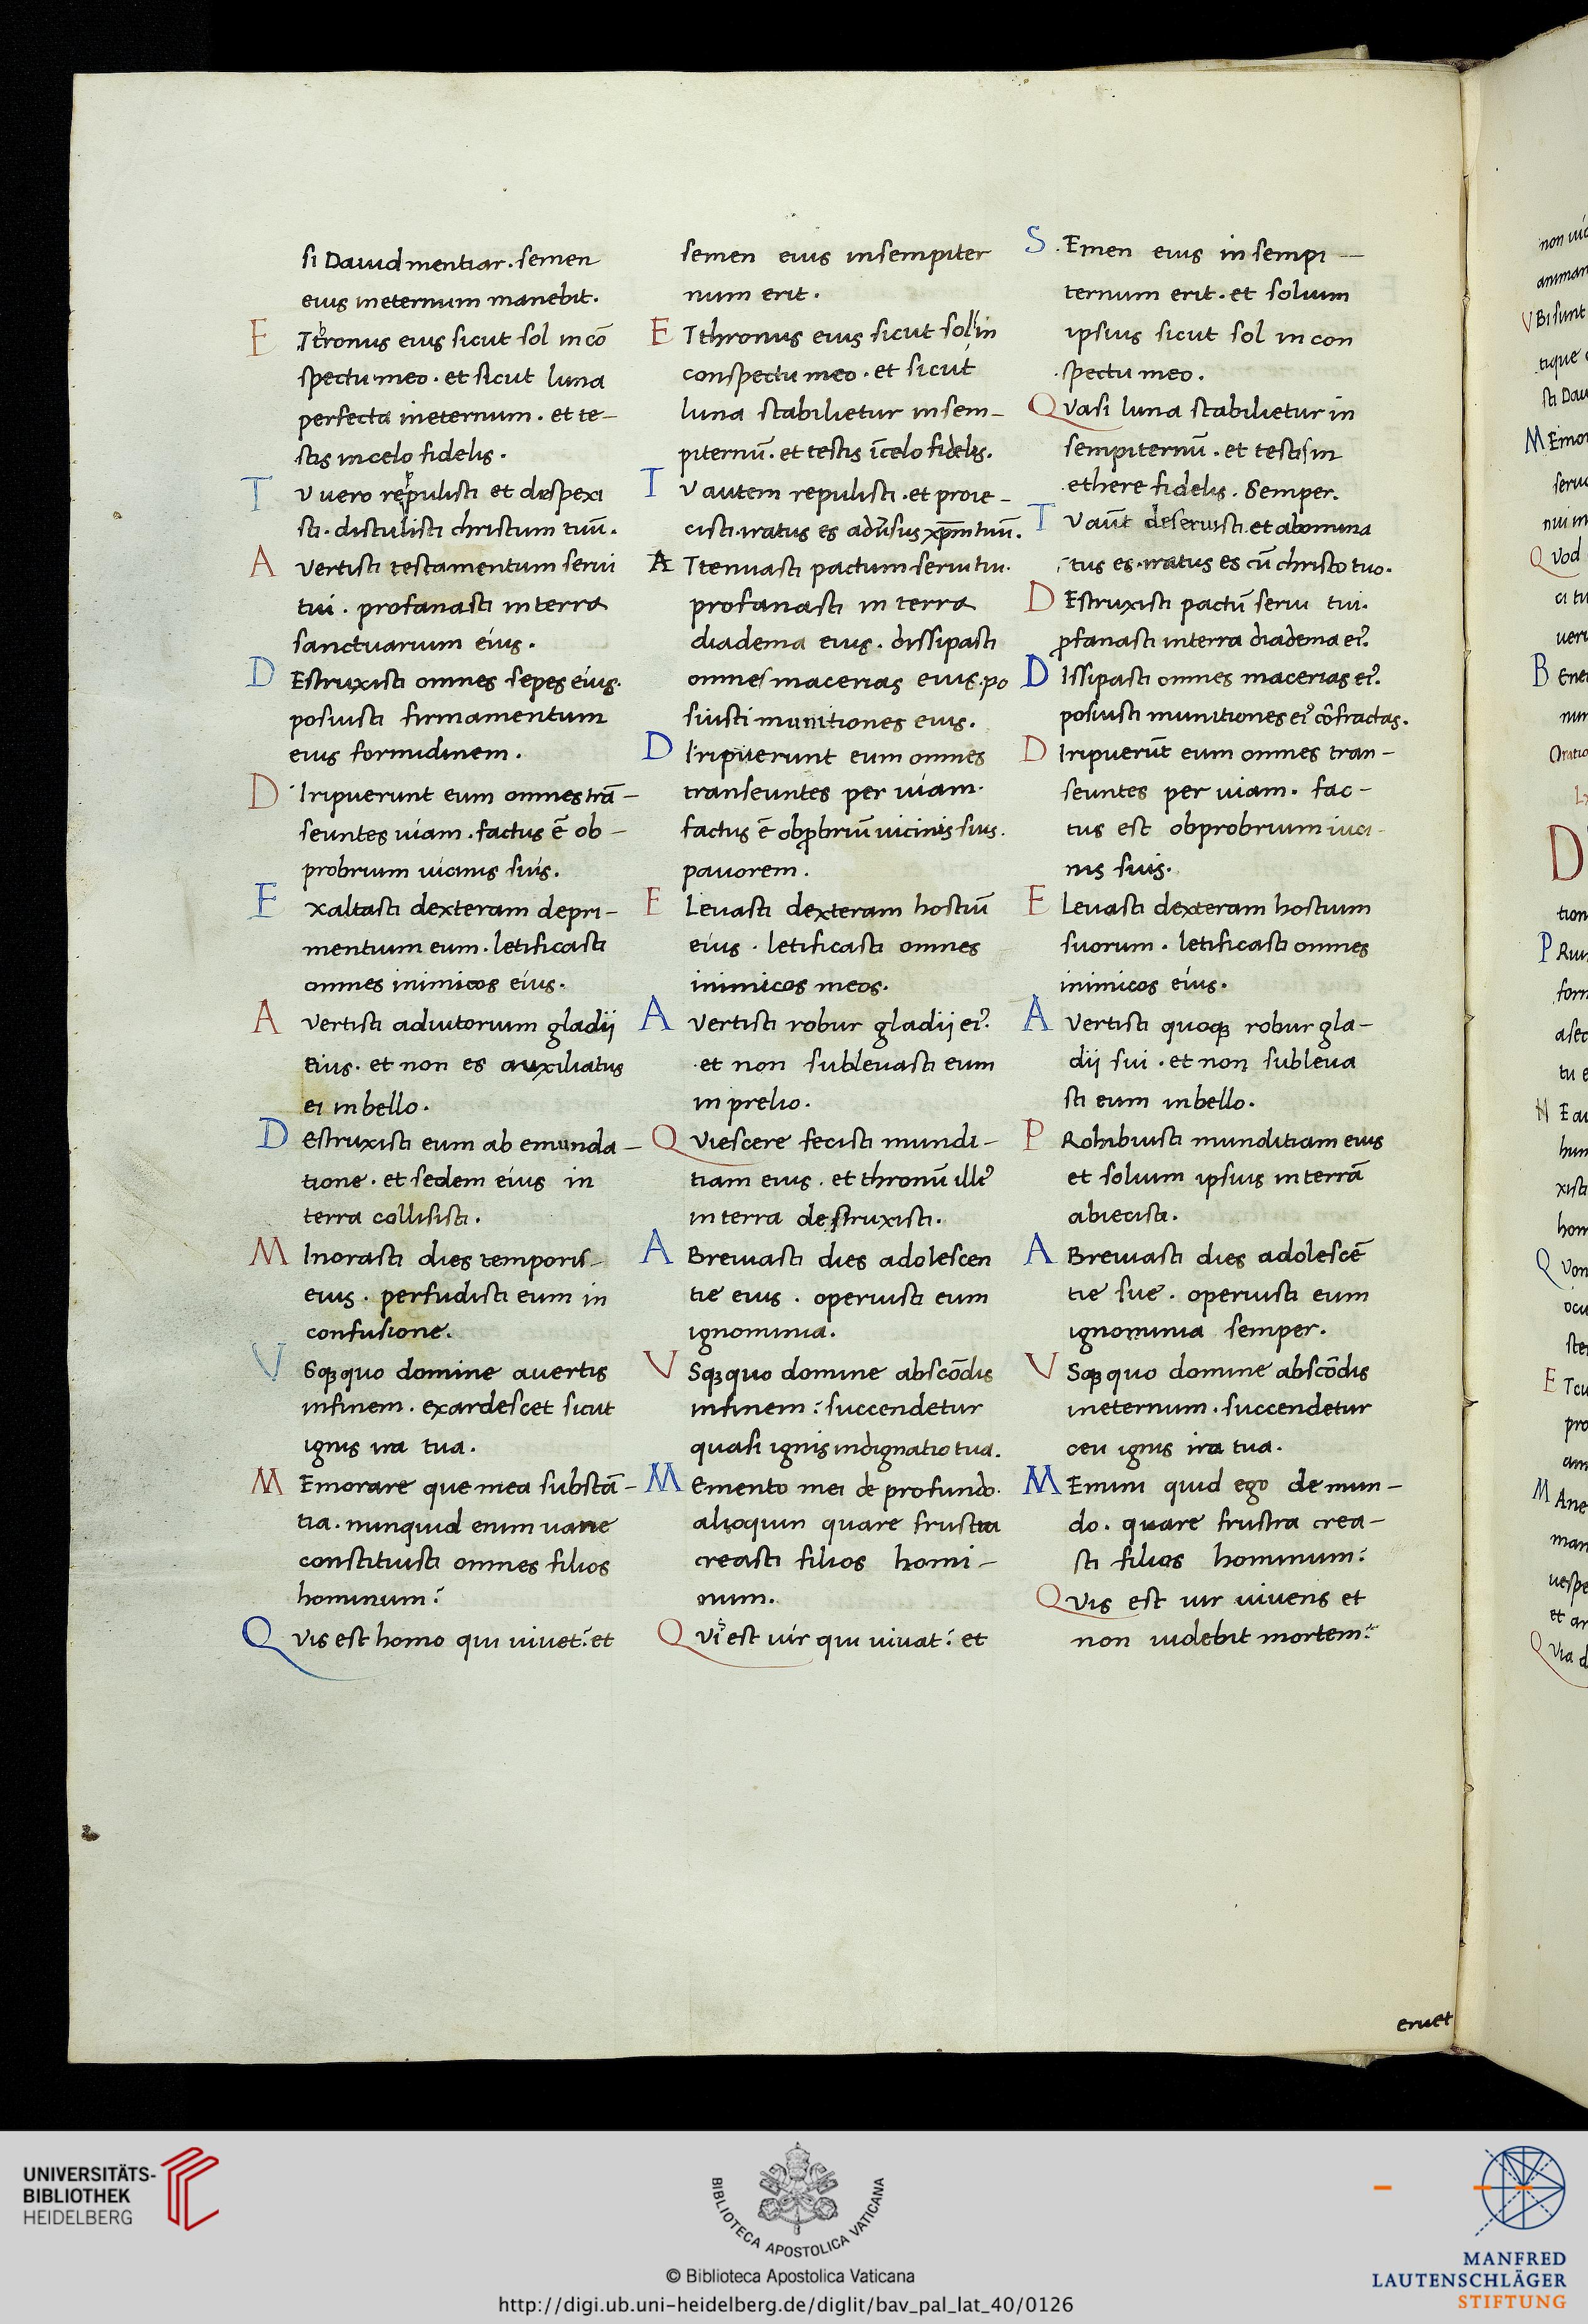 si Dauid mentiar. semen
eius ineternum manebit.
E Tthronus eius sicut sol incō
spectu meo. et sicut luna
perfecta ineternum. et te-
stis incelo fidelis.
T V uero repulisti et despexi
sti. distulisti christum tuū.
A Vertisti testamentum serui
tui. profanasti interra
sanctuarium eius.
D Estruxisti omnes sepes eius.
posuisti firmamentum
eius formidinem.
D Iripuerunt eum omnes trā-
seuntes uiam. factus ē ob-
probrium uicinis suis.
E xaltasti dexteram depri-
mentium eum. letificasti
omnes inimicos eius.
A Vertisti adiutorium gladij
eius. et non es auxiliatus
ei inbello.
D Estruxisti eum ab emunda-
tione. et sedem eius in
terra collisisti.
M Inorasti dies temporis-
eius. perfudisti eum in
confusione.
V Sqꝫquo domine auertis
infinem. exardescet sicut
ignis ira tua.
M Emorare que mea substā-
tia. nunquid enim uane
constituisti omnes filios
hominum?
Q Vis est homo qui uiuet? et
semen eius insempiter
num erit.
E Tthronus eius sicut sol in
conspectu meo. et sicut
luna stabilietur insem-
piternū. et testis īcelo fidelis.
T V autem repulisti. et proie-
cisti. iratus es adūsus xp̄m tuū.
A Ttenuasti pactum serui tui.
profanasti in terra
diadema eius. dissipasti
omnes macerias eius. po
siusti munitiones eius.
D Iripuerunt eum omnes
transeuntes per uiam.
factus ē obꝓbriū uicinis suis.
pauorem.
E Leuasti dexteram hostiū
eius. letificasti omnes
inimicos meos.
A Vertisti robur gladij ei᾽.
et non subleuasti eum
in prelio.
Q Viescere fecisti mundi-
tiam eius. et thronū illi᾽
interra destruxisti.
A Breuiasti dies adolescen
tie eius. operuisti eum
ignominia.
V Sqꝫquo domine abscōdis
infinem? succendetur
quasi ignis indignatio tua.
M Emento mei de profundo.
alioquin quare frustra
creasti filios homi-
num.
Q Vis est uir qui uiuat? et
S Emen eius in sempi-
ternum erit. et solium
ipsius sicut sol in con
spectu meo.
Q Vasi luna stabilietur in
sempiternū. et testis in
ethere fidelis. Semper.
T V aūt deseruisti et abomina
tus es. iratus es cū christo tuo.
D Estruxisti pactū serui tui.
ꝓfanasti interra diadema ei᾽.
D Issipasti omnes macerias ei᾽.
posuisti munitiones ei᾽ cōfractas.
D Iripuerūt eum omnes tran-
seuntes per uiam. fac-
tus est obprobrium iuci-
nis suis.
E Leuasti dexteram hostium
suorum. letificasti omnes
inimicos eius.
A Vertisti quoqꝫ robur gla-
dij sui. et non subleua
sti eum inbello.
P Rohibuisti munditiam eius
et solium ipsius interrā
abiecisti.
A Breuiasti dies adolescē
tie sue. operuisti eum
ignominia semper.
V Sqꝫquo domine abscōdis
ineternum. succendetur
ceu ignis ira tua.
M Emini quid ego de mun-
do. quare frustra crea-
sti filios hominum?
Q Vis est uir uiuens et
non uidebit mortem?
eruet
non uic
animam
V Bi sunt
tique
sti Dau
M Emor
seruo
nui in
Q Vod
ci tu
B Ene
num
Oratio
D
tion
P Riu
form
tu e
N E au
hum
xisti
hom
Q Von
ocu
ste
E Tcu
pro
am
M Ane
man
uespe
et ar
Q Via d
UNIVERSITÄTS-
BIBLIOTHEK
HEIDELBERG
BIBLIOTECA APOSTOLICA VATICANA
© Biblioteca Apostolica Vaticana
http://digi.ub.uni-heidelberg.de/diglit/bav_pal_lat_40/0126
MANFRED
LAUTENSCHLÄGER
STIFTUNG